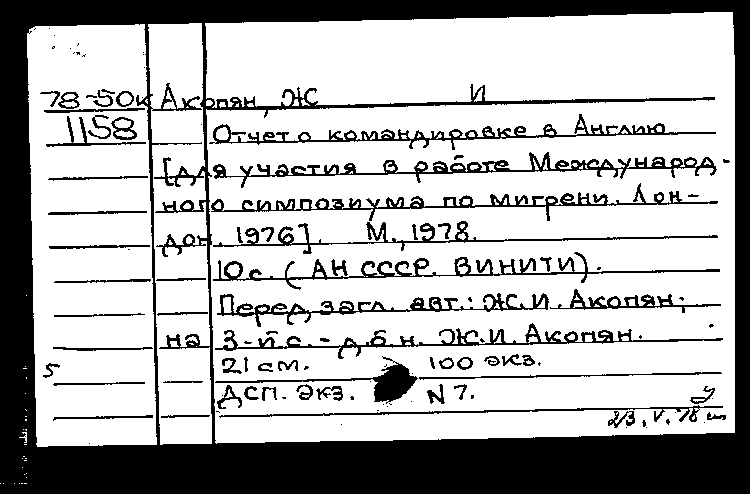 78-50к Акопян, Ж И
1158 Отчет о командировке в Англию
[для участия в работе Международ-
ного симпозиума по мигрени. Лон-
дон. 1976]. М., 1978.
10 с. (АН СССР. ВИНИТИ).
Перед загл. авт.: Ж.И. Акопян;
на 3-й с. - д.б.н. Ж.И. Акопян.
21 см. 100 экз.
5
ДСП. Экз. N 7.
У
2/3.V.78